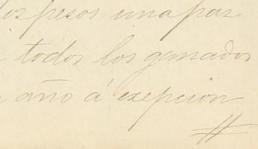 pesos una par
todos los ganados
año á exepcion